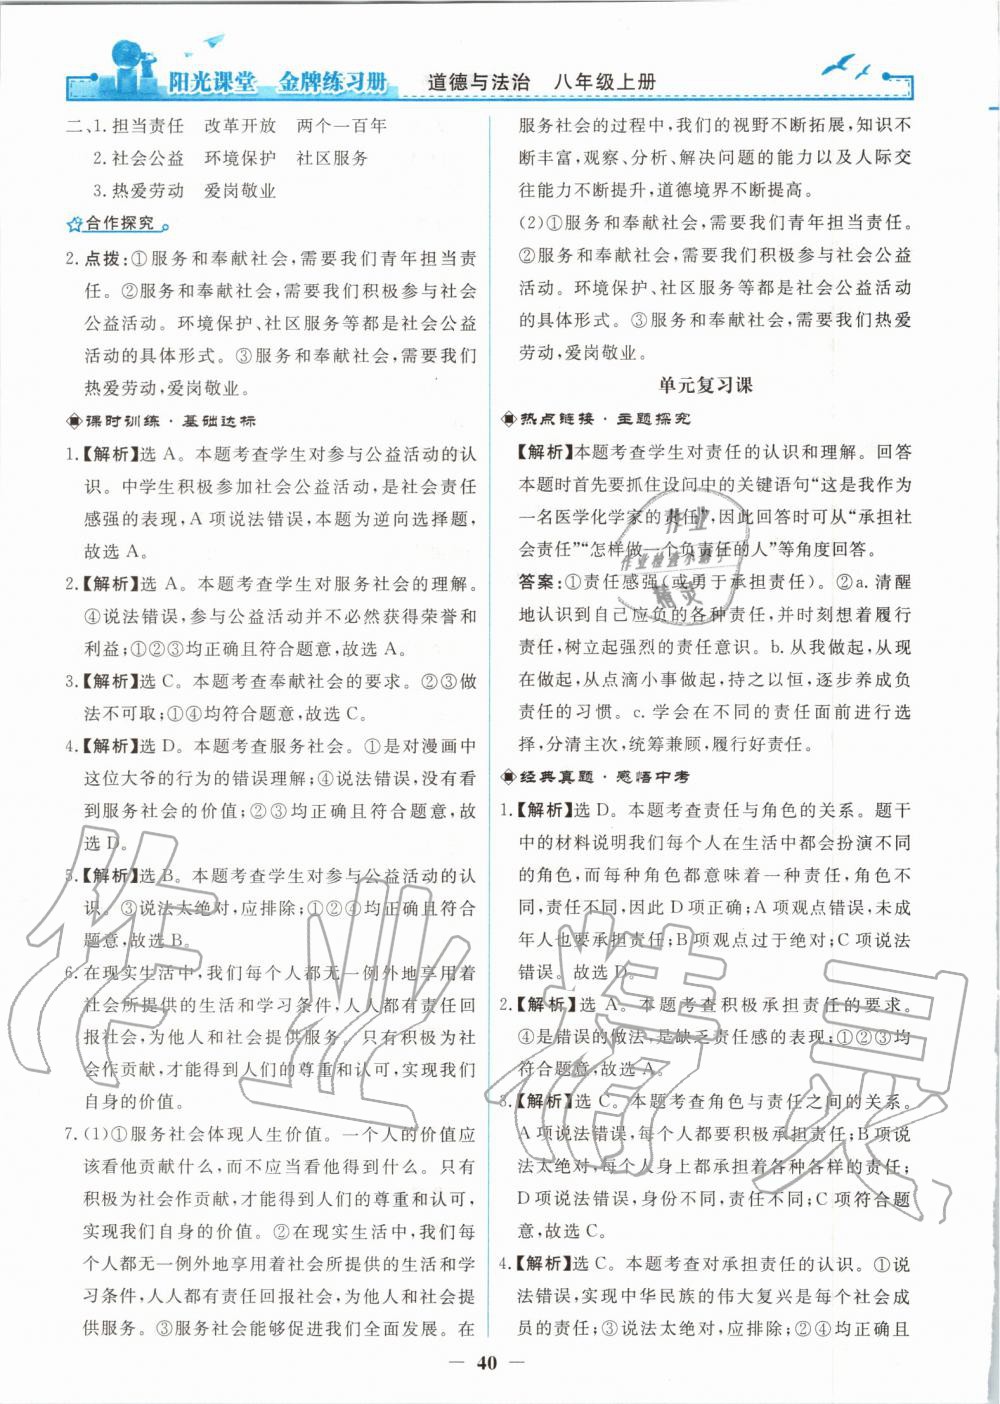 阳光课堂 金牌练习册 道德与法治 八年级上册
二、1.担当责任 改革开放 两个一百年
2.社会公益 环境保护 社区服务
3.热爱劳动 爱岗敬业
合作探究
2.点拨:①服务和奉献社会,需要我们青年担当责
任。②服务和奉献社会,需要我们积极参与社会
公益活动。环境保护、社区服务等都是社会公益
活动的具体形式。③服务和奉献社会,需要我们
热爱劳动,爱岗敬业。
课时训练·基础达标
1.【解析】选 A。本题考查学生对参与公益活动的认
识。中学生积极参加社会公益活动,是社会责任
感强的表现,A 项说法错误,本题为逆向选择题,
故选 A。
2.【解析】选 A。本题考查学生对服务社会的理解。
④说法错误,参与公益活动并不必然获得荣誉和
利益;①②③均正确且符合题意,故选 A。
3.【解析】选 C。本题考查奉献社会的要求。②③做
法不可取;①④均符合题意,故选 C。
4.【解析】选 D。本题考查服务社会。①是对漫画中
这位大爷的行为的错误理解;④说法错误,没有看
到服务社会的价值;②③均正确且符合题意,故
选 D。
5.【解析】选 B。本题考查学生对参与公益活动的认
识。③说法太绝对,应排除;①②④均正确且符合
题意,故选 B。
6.在现实生活中,我们每个人都无一例外地享用着
社会所提供的生活和学习条件,人人都有责任回
报社会,为他人和社会提供服务。只有积极为社
会作贡献,才能得到人们的尊重和认可,实现我们
自身的价值。
7.(1)①服务社会体现人生价值。一个人的价值应
该看他贡献什么,而不应当看他得到什么。只有
积极为社会作贡献,才能得到人们的尊重和认可,
实现我们自身的价值。②在现实生活中,我们每
个人都无一例外地享用着社会所提供的生活和学
习条件,人人都有责任回报社会,为他人和社会提
供服务。③服务社会能够促进我们全面发展。在
服务社会的过程中,我们的视野不断拓展,知识不
断丰富,观察、分析、解决问题的能力以及人际交
往能力不断提升,道德境界不断提高。
(2)①服务和奉献社会,需要我们青年担当责任。
②服务和奉献社会,需要我们积极参与社会公益
活动。环境保护、社区服务等都是社会公益活动
的具体形式。③服务和奉献社会,需要我们热爱
劳动,爱岗敬业。
单元复习课
热点链接·主题探究
【解析】本题考查学生对责任的认识和理解。回答
本题时首先要抓住设问中的关键语句“这是我作为
一名医学化学家的责任”,因此回答时可从“承担社
会责任”“怎样做一个负责任的人”等角度回答。
答案:①责任感强(或勇于承担责任)。②a.清醒
地认识到自己应负的各种责任,并时刻想着履行
责任,树立起强烈的责任意识。b.从我做起,从现在
做起,从点滴小事做起,持之以恒,逐步养成负
责任的习惯。c.学会在不同的责任面前进行选
择,分清主次,统筹兼顾,履行好责任。
经典真题·感悟中考
1.【解析】选 D。本题考查责任与角色的关系。题干
中的材料说明我们每个人在生活中都会扮演不同
的角色,而每种角色都意味着一种责任,角色不
同,责任不同,因此 D 项正确;A 项观点错误,未成
年人也要承担责任;B 项观点过于绝对;C 项说法
错误。故选 D。
2.【解析】选 A。本题考查积极承担责任的要求。
④是错误的做法,是缺乏责任感的表现;①②③均
符合题意,故选 A。
3.【解析】选 C。本题考查角色与责任之间的关系。
A 项说法错误,每个人都要积极承担责任;B 项说
法太绝对,每个人身上都承担着各种各样的责任;
D 项说法错误,身份不同,责任不同;C 项符合题
意,故选 C。
4.【解析】选 C。本题考查对承担责任的认识。①说
法错误,实现中华民族的伟大复兴是每个社会成
员的责任;③说法太绝对,应排除;②④均正确且
40
作业
作业检查小助手
精灵
作业精灵